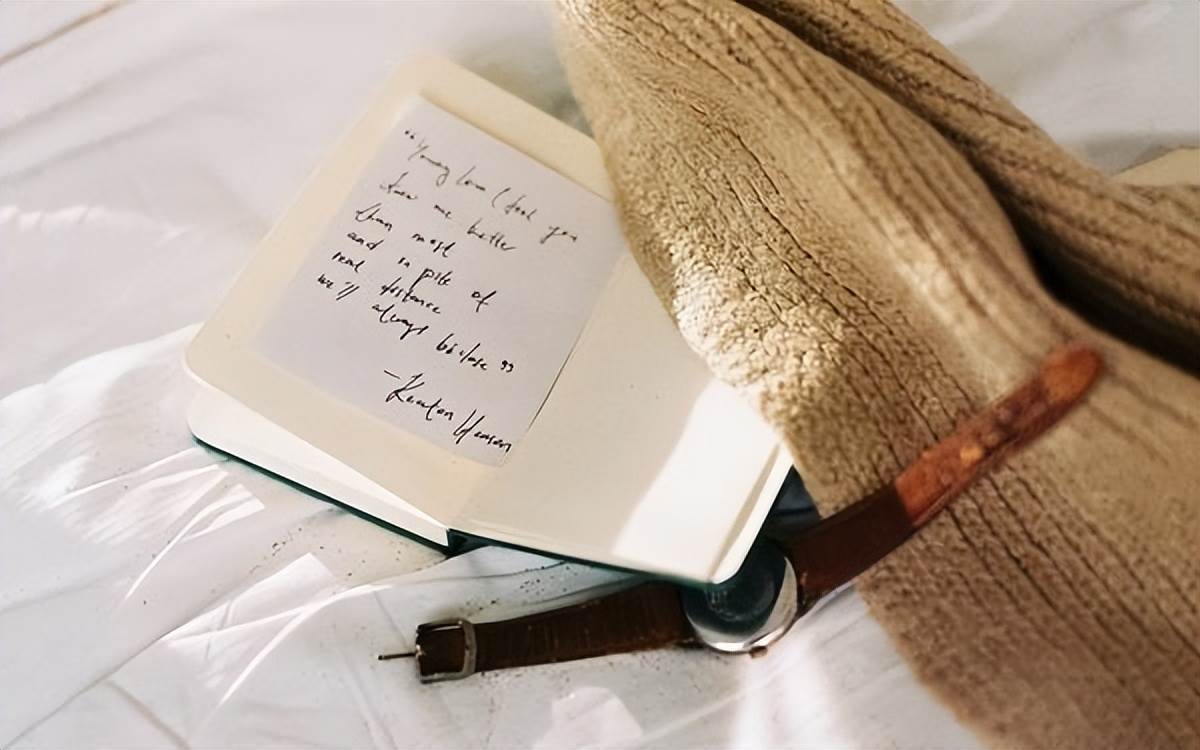 "Young love I feel you
love me better
than most
and in spite of
real distance
we'll always be close"
- Keaton Henson